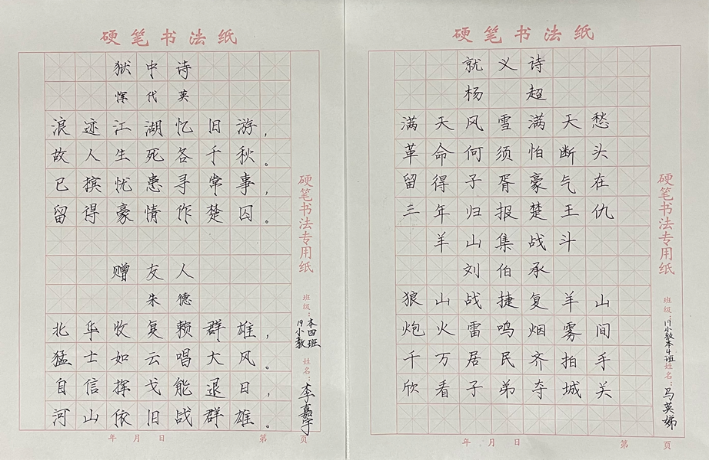 硬笔书法纸
狱中诗
恽代英
浪迹江湖忆旧游，
故人生死各千秋。
已摈忧患寻常事，
留得豪情作楚囚。
赠友人
朱德
北华收复赖群雄，
猛士如云唱大风。
自信挥戈能退日，
河山依旧战群雄。
硬笔书法专用纸
班级：19小教本四班
姓名：李嘉宇
年 月 日 第 页
硬笔书法纸
就义诗
杨超
满天风雪满天愁
革命何须怕断头
留得子胥豪气在
三年归报楚王仇
羊山集战斗
刘伯承
狼山战捷复羊山
炮火雷鸣烟雾间
千万居民齐拍手
欣看子弟夺城关
硬笔书法专用纸
班级：19小教本4班
姓名：马英娣
年 月 日 第 页